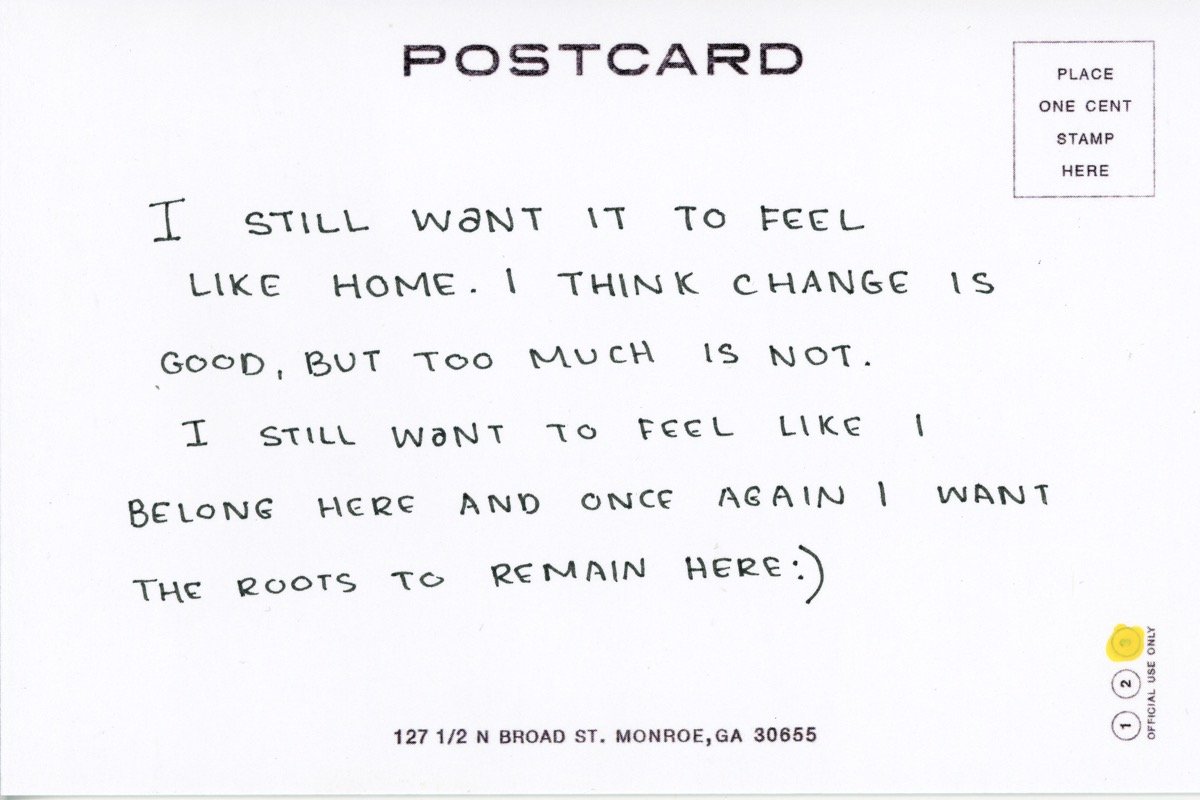 POSTCARD
PLACE
ONE CENT
STAMP
HERE
I STILL WANT IT TO FEEL
LIKE HOME. I THINK CHANGE IS
GOOD, BUT TOO MUCH IS NOT.
I STILL WANT TO FEEL LIKE I
BELONG HERE AND ONCE AGAIN I WANT
THE ROOTS TO REMAIN HERE:)
127 1/2 N BROAD ST. MONROE,GA 30655
1 2 3
OFFICIAL USE ONLY